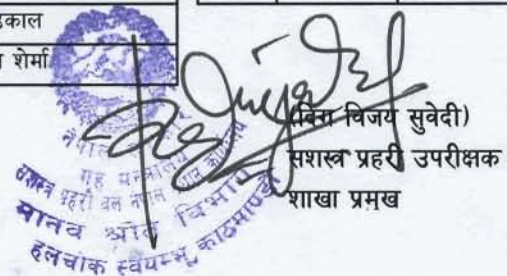 ढकाल
शेर्मा
(बिरा विजय सुवेदी)
सशस्त्र प्रहरी उपरीक्षक
शाखा प्रमुख
नेपाल
गृह मन्त्रालय
सशस्त्र प्रहरी बल नेपाल
मानव श्रोत विभाग
हलचोक स्वयम्भू, काठमाण्डौ